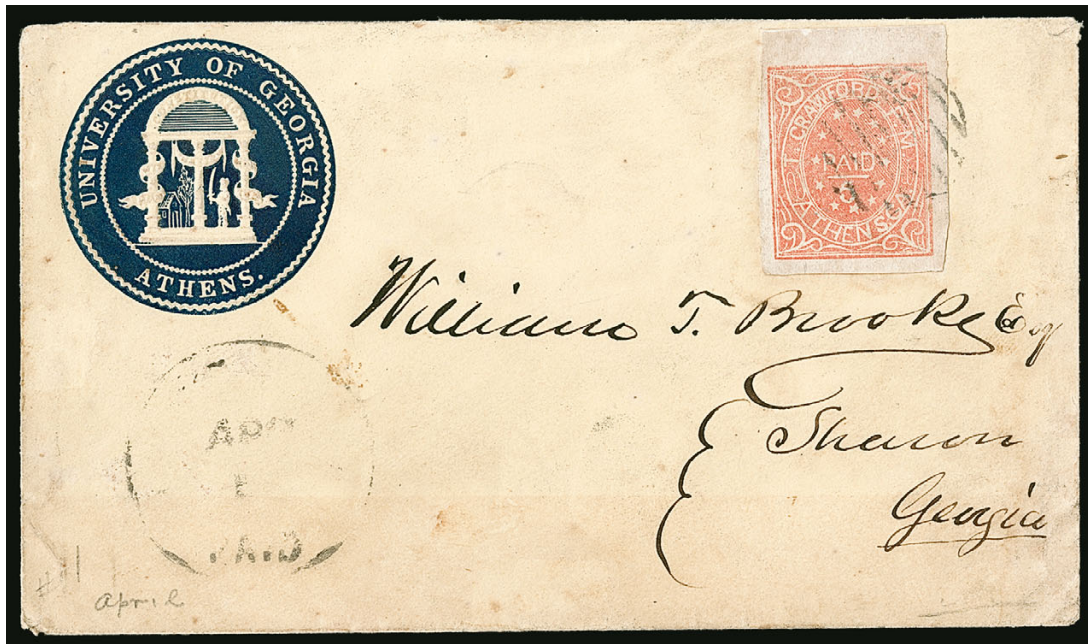 UNIVERSITY OF GEORGIA
ATHENS.
T. CRAWFORD P.M
PAID
5
ATHENS GA.
William T. Brooke Esq
Sharon
Georgia
APR
PAID
April